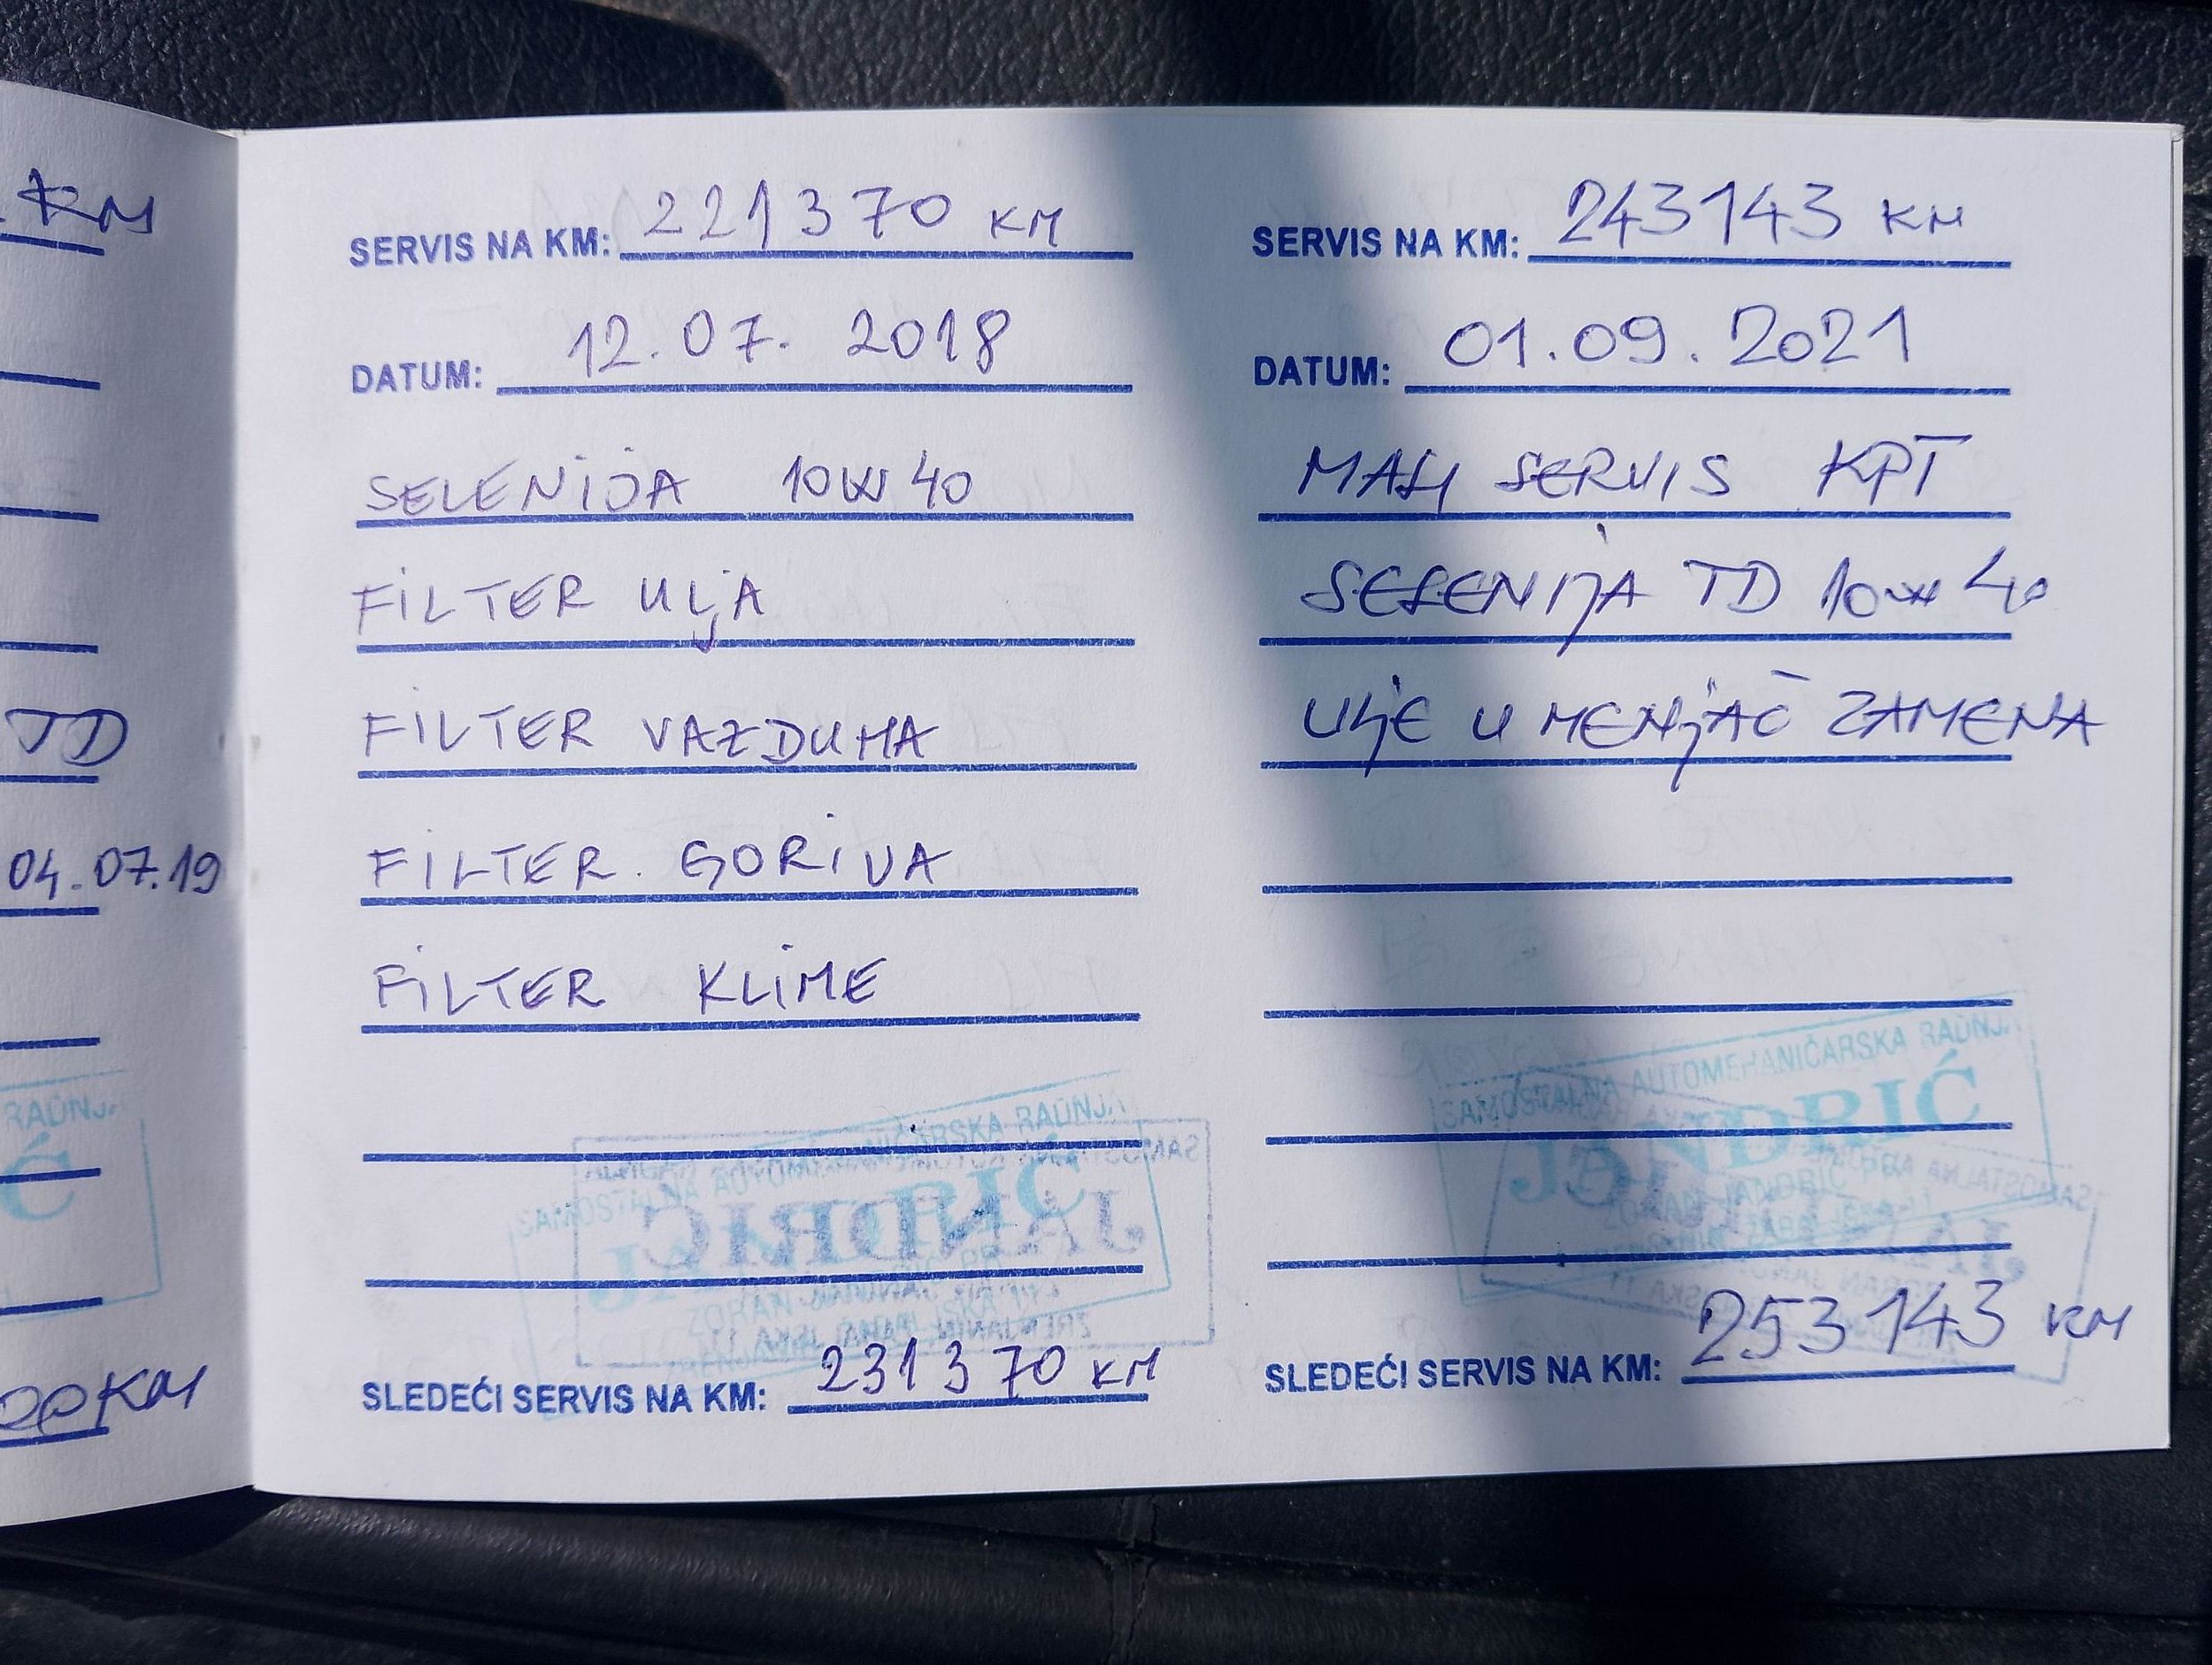 KM
TD
04.07.19
RADNJA
Ć
00 KM
SERVIS NA KM: 221370 KM
DATUM: 12.07. 2018
SELENIJA 10W40
FILTER ULJA
FILTER VAZDUHA
FILTER. GORIVA
FILTER KLIME
SAMOSTALNA AUTOMEHANIČARSKA RADNJA
JANDRIĆ
ZORAN JANDRIĆ PR
SLEDEĆI SERVIS NA KM: 231370 KM
SERVIS NA KM: 243143 KM
DATUM: 01.09.2021
MALI SERVIS KPT
SELENIJA TD 10W40
ULJE U MENJAČ ZAMENA
SAMOSTALNA AUTOMEHANIČARSKA RADNJA
JANDRIĆ
ZORAN JANDRIĆ PR
SLEDEĆI SERVIS NA KM: 253143 KM